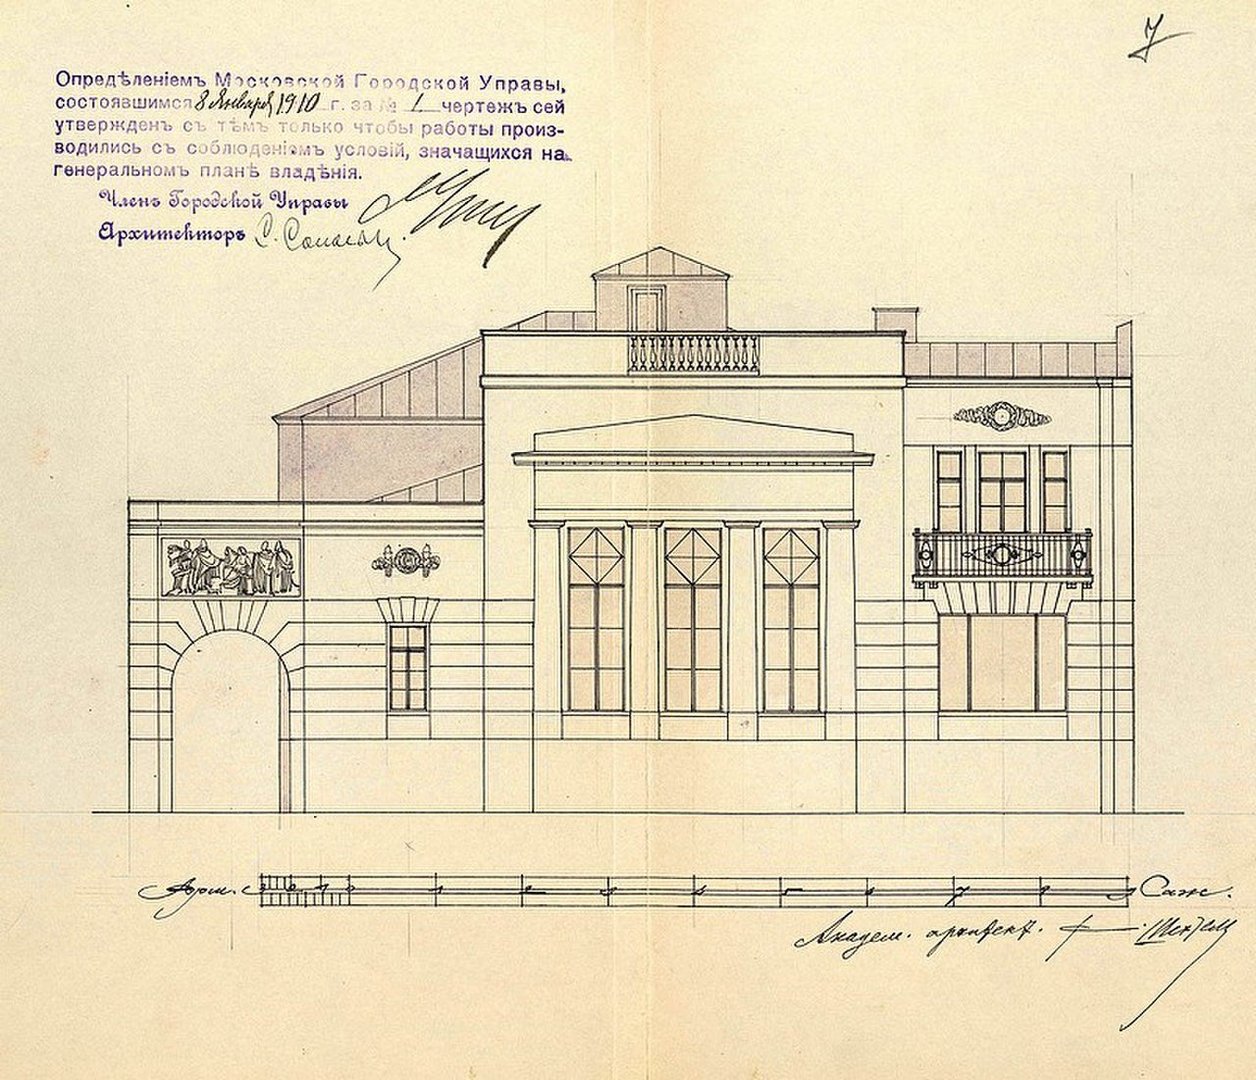 7
Опредѣленіемъ Московской Городской Управы,
состоявшимся 8 Января 1910 г. за № 1 чертежъ сей
утвержденъ съ тѣмъ только чтобы работы произ-
водились съ соблюденіемъ условій, значащихся на
генеральномъ планѣ владѣнія.
Членъ Городской Управы
Архитекторъ С.
Арш. 3 2 1 0 1 2 3 4 5 6 7 8 9 Саж.
Академ. архитект. Ф. Шехтель